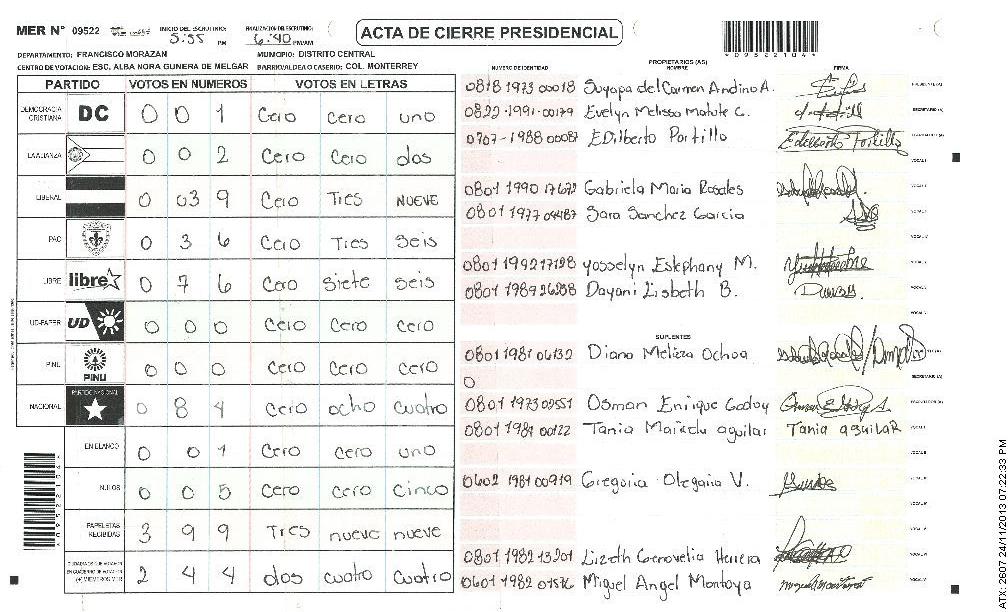 MER N° 09522 INICIO DEL ESCRUTINIO: 5:55 PM FINALIZACION DEL ESCRUTINIO: 6:40 PM/AM
ACTA DE CIERRE PRESIDENCIAL
*09522104*
DEPARTAMENTO: FRANCISCO MORAZAN MUNICIPIO: DISTRITO CENTRAL
CENTRO DE VOTACION: ESC. ALBA NORA GUNERA DE MELGAR BARRIO/ALDEA O CASERIO: COL. MONTERREY
PARTIDO VOTOS EN NUMEROS VOTOS EN LETRAS
DEMOCRACIA CRISTIANA DC 0 0 1 Cero cero uno
LA ALIANZA 0 0 2 Cero Cero dos
LIBERAL 0 03 9 Cero Tres NUEVE
PAC 0 3 6 Cero Tres seis
LIBRE libre 0 7 6 Cero siete seis
UD-FAPER UD 0 0 0 Cero Cero Cero
PINU PINU 0 0 0 Cero Cero Cero
NACIONAL PARTIDO NACIONAL 0 8 4 Cero ocho cuatro
EN BLANCO 0 0 1 Cero Cero uno
NULOS 0 0 5 Cero cero cinco
PAPELETAS RECIBIDAS 3 9 9 Tres nueve nueve
2 4 4 dos cuatro cuatro
NUMERO DE IDENTIDAD PROPIETARIOS (AS) NOMBRE FIRMA
0818 1973 00018 Suyapa del Carmen Andino A. PRESIDENTE (A)
0822-1991-00179 Evelyn Melissa Matute C. SECRETARIO (A)
0767-1988 00087 EDilberto Portillo Edelberto Portillo
VOCAL I
0801 1990 17672 Gabriela Maria Rosales
0801 1977 04487 Sara Sanchez Garcia
0801 1992 17128 yosselyn Estephany M.
0801 1989 26288 Dayani Lisbeth B.
SUPLENTES
0801 1981 06132 Diana Meliza Ochoa
0
SECRETARIO (A)
0801 1973 02551 Osman Enrique Godoy
0801 1984 00122 Tania aguilar Tania aguilar
0602 1981 00919 Gregoria Olegaria V.
0801 1982 13201 Lizeth Genovelia Herrera
0601 1982 01516 Miguel Angel Montoya
ATX 2607 24/11/2013 07:22:33 PM